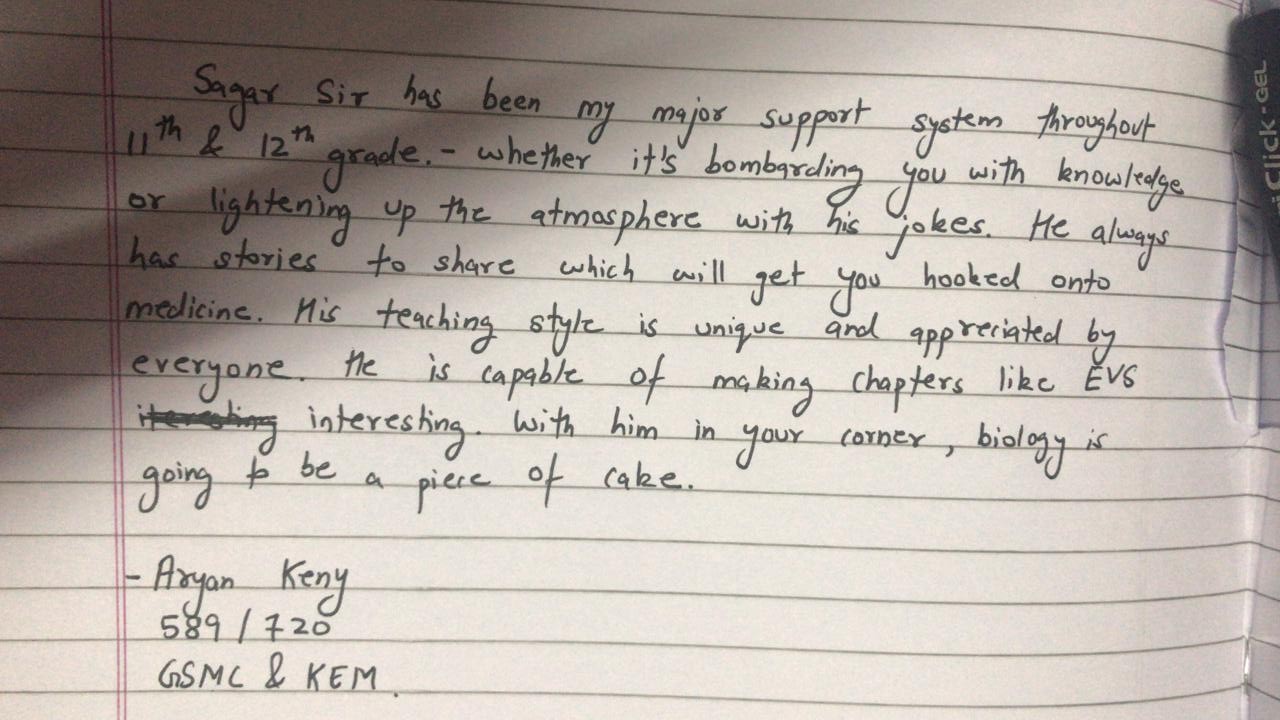 Sagar Sir has been my major support system throughout
11th & 12th grade. - whether it's bombarding you with knowledge
or lightening up the atmosphere with his jokes. He always
has stories to share which will get you hooked onto
medicine. His teaching style is unique and appreciated by
everyone. He is capable of making chapters like EVS
iteresting interesting. With him in your corner, biology is
going to be a piece of cake.
- Aryan Keny
589 / 720
GSMC & KEM.
Click-GEL